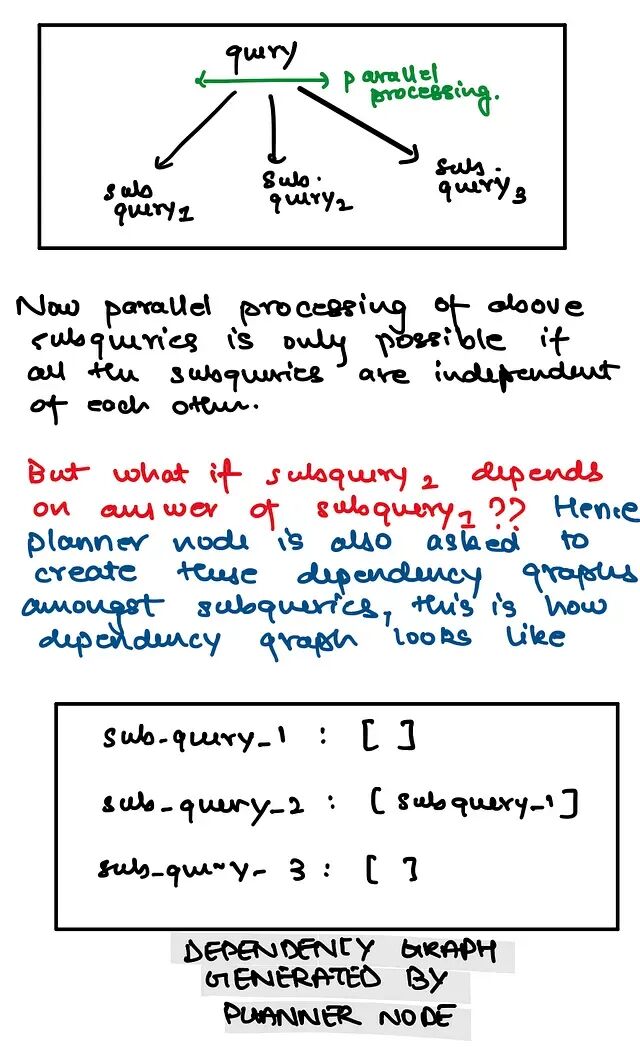 query
parallel
processing.
sub
query1
sub.
query2
sub.
query3
Now parallel processing of above
subqueries is only possible if
all the subqueries are independent
of each other.
But what if subquery2 depends
on answer of subquery1 ?? Hence
planner node is also asked to
create these dependency graphs
amongst subqueries, this is how
dependency graph looks like
sub-query_1 : [ ]
sub_query_2 : [subquery_1]
sub_query_3 : [ ]
DEPENDENCY GRAPH
GENERATED BY
PLANNER NODE